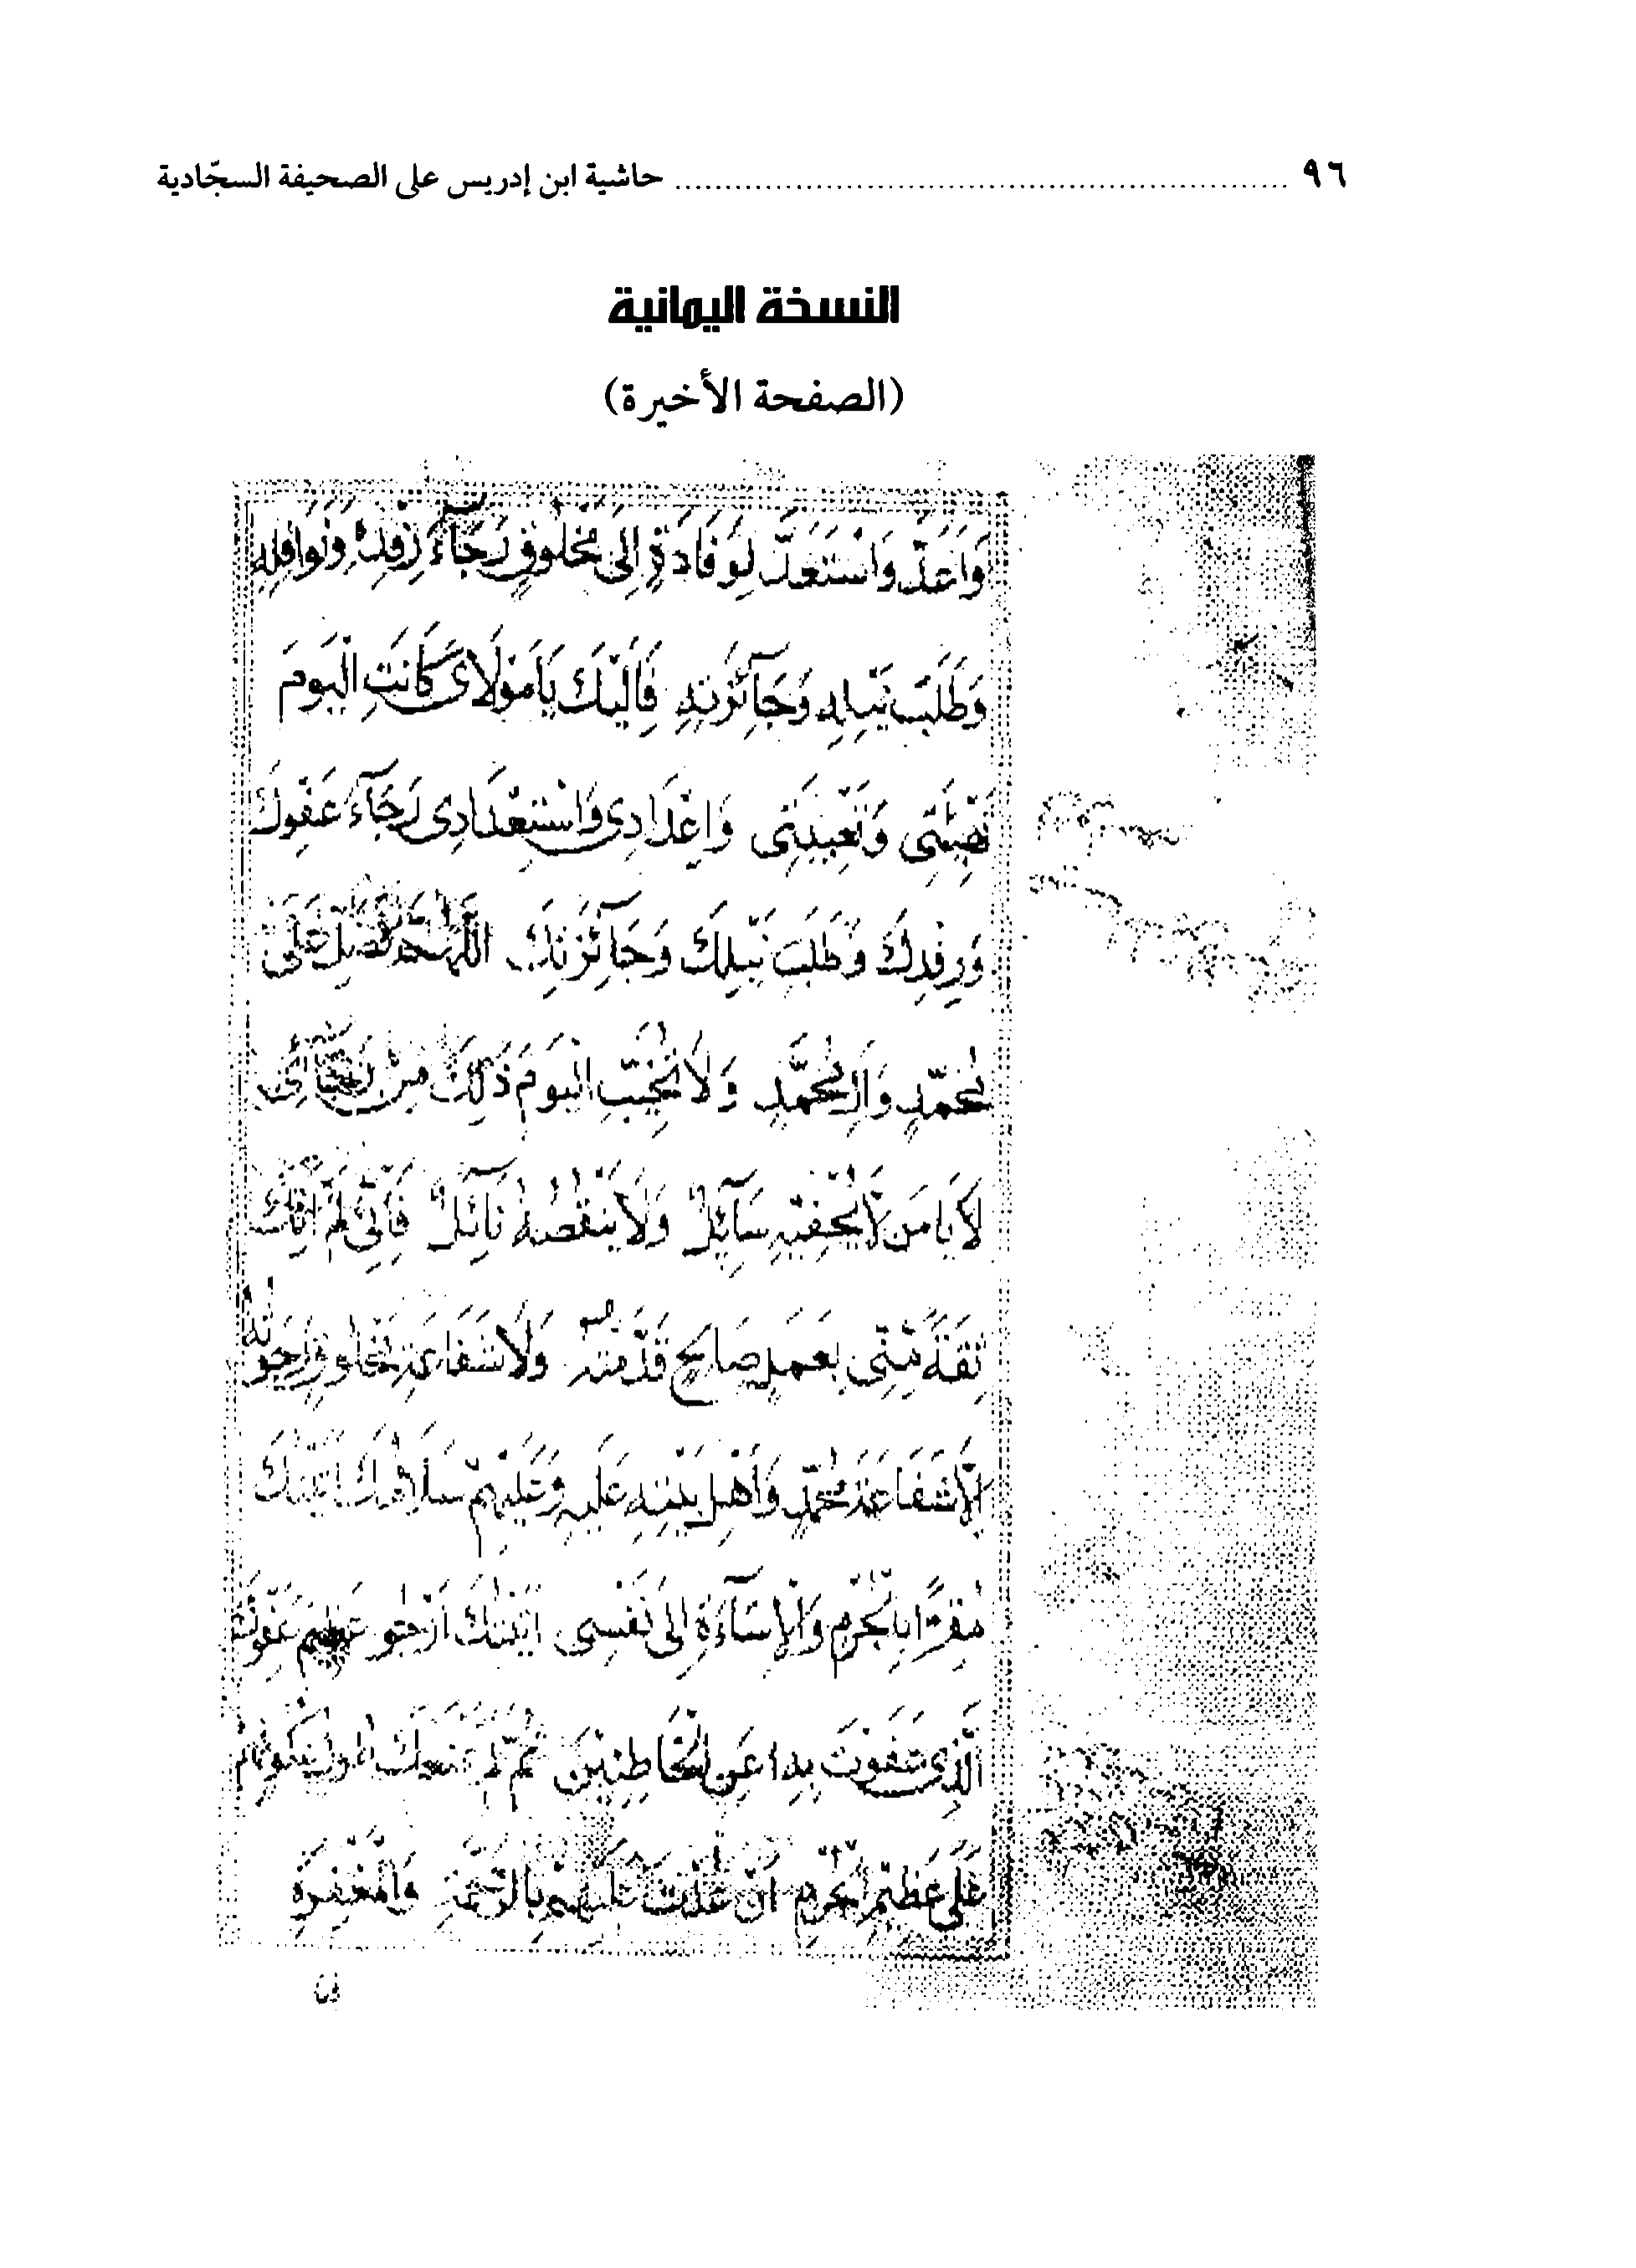 ٩٦ ........ حاشية ابن إدريس على الصحيفة السجّادية
النسخة اليمانية
(الصفحة الأخيرة)
وَاَعَدَّ وَاسْتَعَدَّ لِوَفَادَةٍ اِلَى مَخْلُوقٍ رَجَآءَ رِفْدِهِ وَنَوَافِلِهِ
وَطَلَبَ نَيْلِهِ وَجَآئِزَتِهِ فَاِلَيْكَ يَا مَوْلَاىَ كَانَتِ الْيَوْمَ
تَهْيِئَتِى وَتَعْبِيَتِى وَاِعْدَادِى وَاسْتِعْدَادِى رَجَآءَ عَفْوِكَ
وَرِفْدِكَ وَطَلَبَ نَيْلِكَ وَجَآئِزَتِكَ اَللّٰهُمَّ فَصَلِّ عَلَى
مُحَمَّدٍ وَاٰلِ مُحَمَّدٍ وَلَا تُخَيِّبِ الْيَوْمَ ذٰلِكَ مِنْ رَجَآئِى
لَا يَا مَنْ لَا يُحْفِيهِ سَآئِلٌ وَلَا يَنْقُصُهُ نَآئِلٌ فَاِنِّى لَمْ اٰتِكَ
ثِقَةً مِنِّى بِعَمَلٍ صَالِحٍ قَدَّمْتُهُ وَلَا شَفَاعَةِ مَخْلُوقٍ رَجَوْتُهُ
اِلَّا شَفَاعَةَ مُحَمَّدٍ وَاَهْلِ بَيْتِهِ عَلَيْهِ وَعَلَيْهِمْ سَلَامُكَ اَتَيْتُكَ
مُقِرًّا بِالْجُرْمِ وَالْاِسَآءَةِ اِلَى نَفْسِى اَتَيْتُكَ اَرْجُو عَظِيمَ عَفْوِكَ
الَّذِى عَفَوْتَ بِهِ عَنِ الْخَاطِئِيْنَ ثُمَّ لَمْ
عَلَى عَظِيْمِ الْجُرْمِ اَنْ عُدْتَ عَلَيْهِمْ بِالرَّحْمَةِ وَالْمَغْفِرَةِ